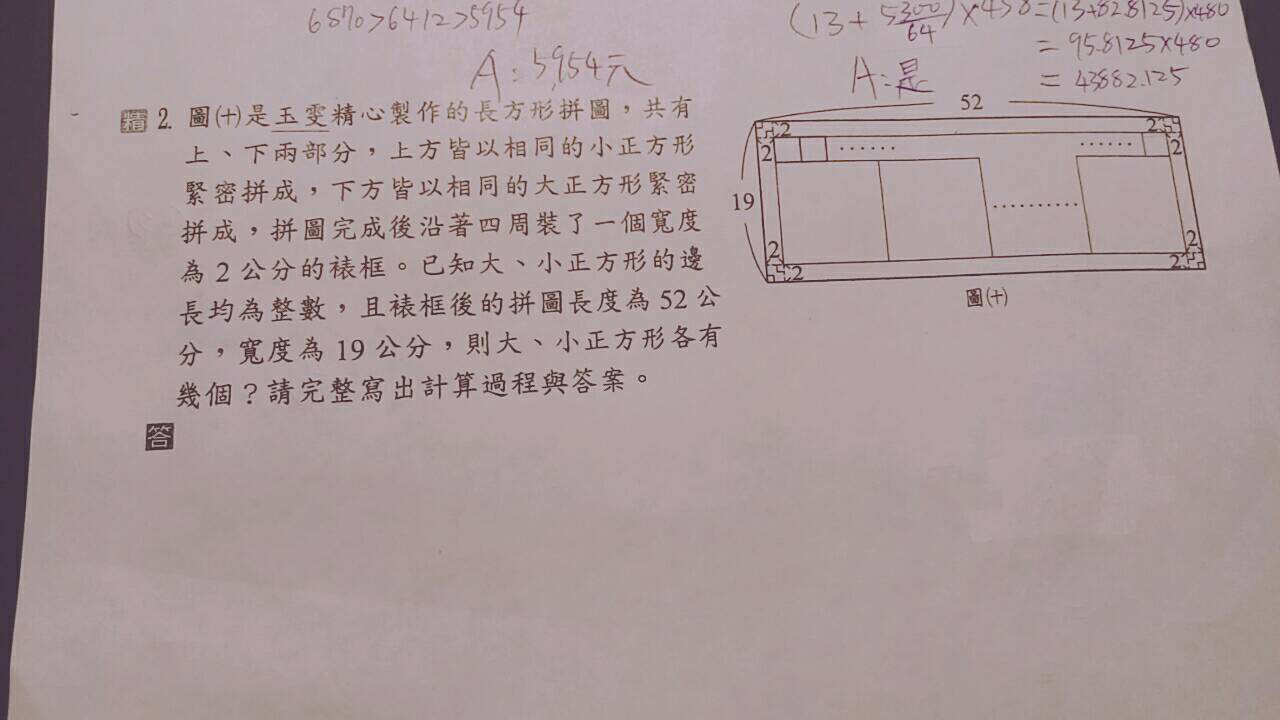 6870>6412>5954
A:5954元
(13+5300/64)×458=(13+82.8125)×480
=95.8125×480
=43882.125
A:是
精 2. 圖(十)是玉雯精心製作的長方形拼圖，共有
上、下兩部分，上方皆以相同的小正方形
緊密拼成，下方皆以相同的大正方形緊密
拼成，拼圖完成後沿著四周裝了一個寬度
為 2 公分的裱框。已知大、小正方形的邊
長均為整數，且裱框後的拼圖長度為 52 公
分，寬度為 19 公分，則大、小正方形各有
幾個？請完整寫出計算過程與答案。
答
52
2 2
2 …… …… 2
19 ……
2 2
2 2
圖(十)